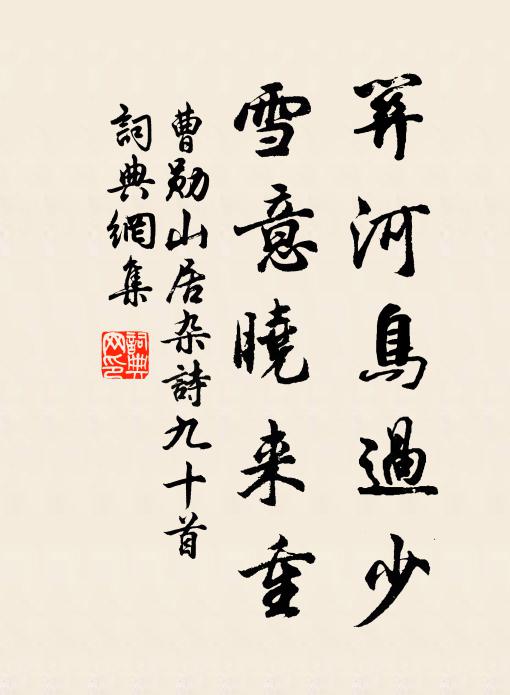 關河鳥過少
雪意曉来重
曹勛山居杂詩九十首
詞典網集
詞典
网印